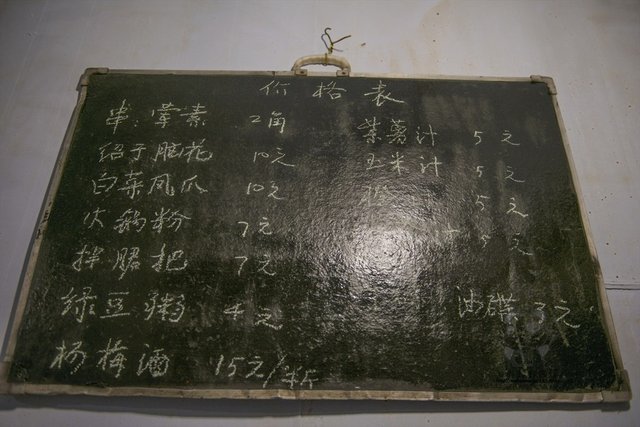 价格表
串:荤素 2角
绍子脑花 10元
白菜凤爪 10元
火鹅粉 7元
粑 7元
绿豆粥 4元
杨梅酒 15元/斤
紫薯汁 5元
玉米汁 5元
5元
5元
油碟 3元